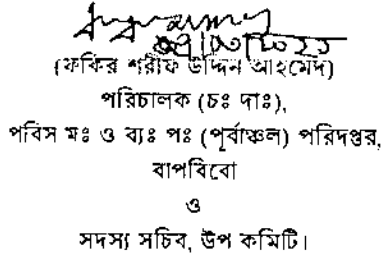 (ফকির শরীফ উদ্দিন আহমেদ)
পরিচালক (চঃ দাঃ),
পবিস মঃ ও ব্যঃ পঃ (পূর্বাঞ্চল) পরিদপ্তর,
বাপবিবো
ও
সদস্য সচিব, উপ কমিটি।